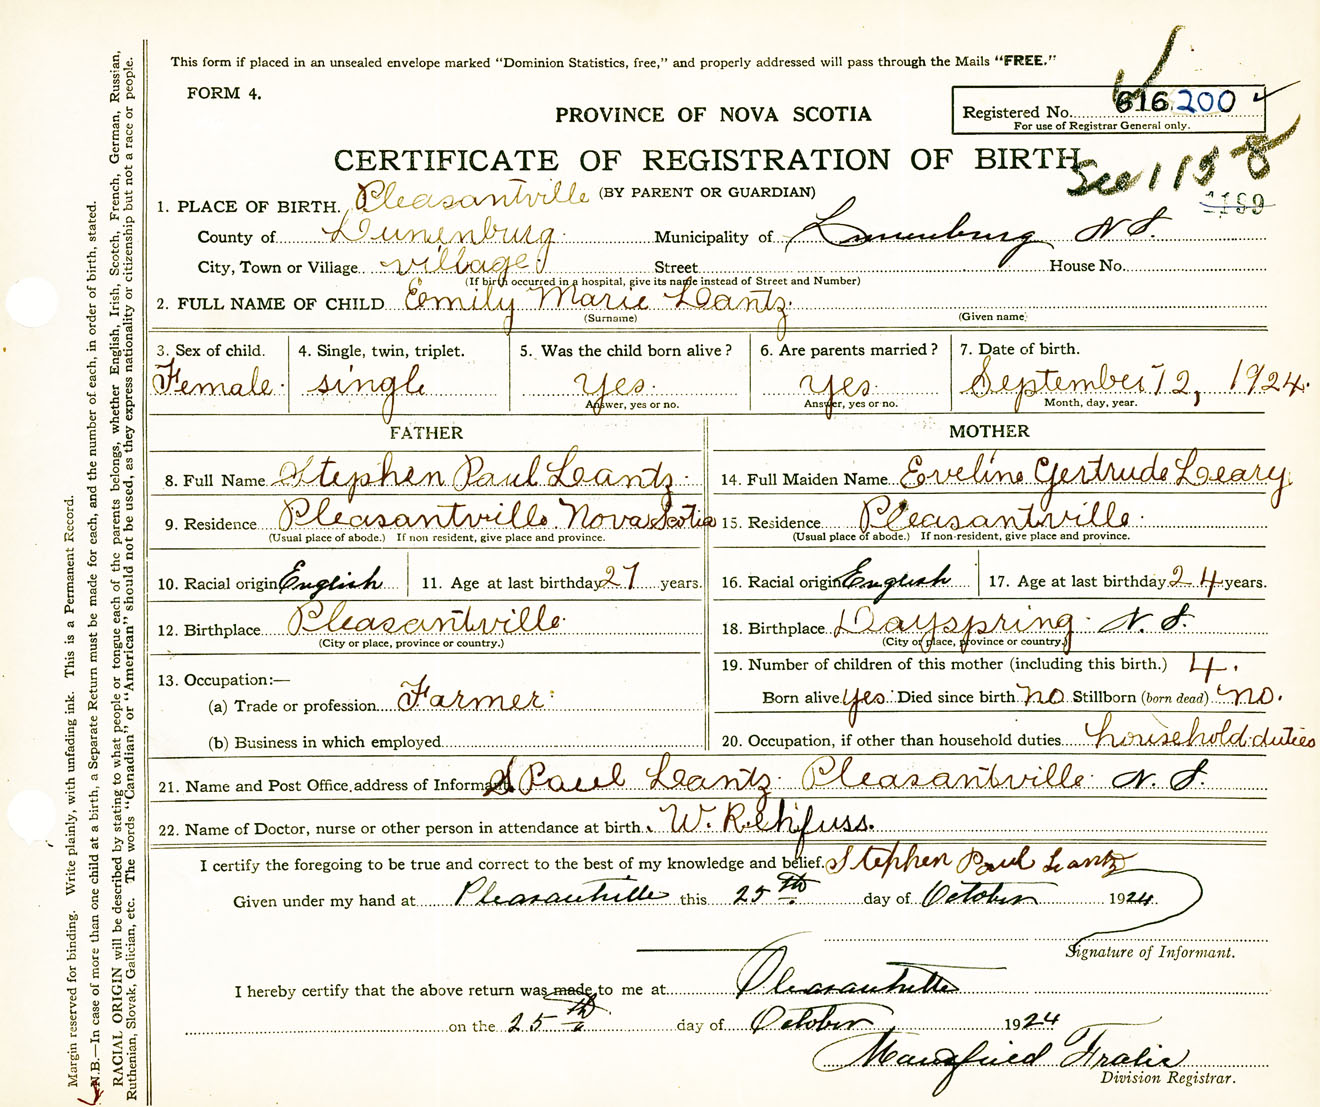 This form if placed in an unsealed envelope marked "Dominion Statistics, free," and properly addressed will pass through the Mails "FREE."
FORM 4.
PROVINCE OF NOVA SCOTIA
Registered No. 616 200
For use of Registrar General only.
CERTIFICATE OF REGISTRATION OF BIRTH
See 115-8
1199
(BY PARENT OR GUARDIAN)
1. PLACE OF BIRTH. Pleasantville
County of Lunenburg. Municipality of Lunenburg N S.
City, Town or Village village. Street House No.
(If birth occurred in a hospital, give its name instead of Street and Number)
2. FULL NAME OF CHILD Emily Marie Lantz.
(Surname) (Given name)
3. Sex of child. 4. Single, twin, triplet. 5. Was the child born alive? 6. Are parents married? 7. Date of birth.
Female. single yes. yes. September 12, 1924.
Answer, yes or no. Answer, yes or no. Month, day, year.
FATHER MOTHER
8. Full Name Stephen Paul Lantz. 14. Full Maiden Name Eveline Gertrude Leary.
9. Residence Pleasantville Nova Scotia 15. Residence Pleasantville.
(Usual place of abode.) If non resident, give place and province. (Usual place of abode.) If non-resident, give place and province.
10. Racial origin English 11. Age at last birthday 27 years. 16. Racial origin English 17. Age at last birthday 24 years.
12. Birthplace Pleasantville. 18. Birthplace Dayspring. N. S.
(City or place, province or country.) (City or place, province or country.)
19. Number of children of this mother (including this birth.) 4.
13. Occupation:—
(a) Trade or profession Farmer. Born alive yes. Died since birth no Stillborn (born dead) no.
(b) Business in which employed 20. Occupation, if other than household duties household duties
21. Name and Post Office address of Informant S Paul Lantz. Pleasantville. N. S.
22. Name of Doctor, nurse or other person in attendance at birth. W. Rehfuss.
I certify the foregoing to be true and correct to the best of my knowledge and belief. Stephen Paul Lantz
Given under my hand at Pleasantville this 25th day of October 1924.
Signature of Informant.
I hereby certify that the above return was made to me at Pleasantville
on the 25th day of October 1924
Mansfield Fralic
Division Registrar.
Margin reserved for binding. Write plainly, with unfading ink. This is a Permanent Record.
N.B.—In case of more than one child at a birth, a Separate Return must be made for each, and the number of each, in order of birth, stated.
RACIAL ORIGIN will be described by stating to what people or tongue each of the parents belongs, whether English, Irish, Scotch, French, German, Russian,
Ruthenian, Slovak, Galician, etc. The words "Canadian" or "American" should not be used, as they express nationality or citizenship but not a race or people.